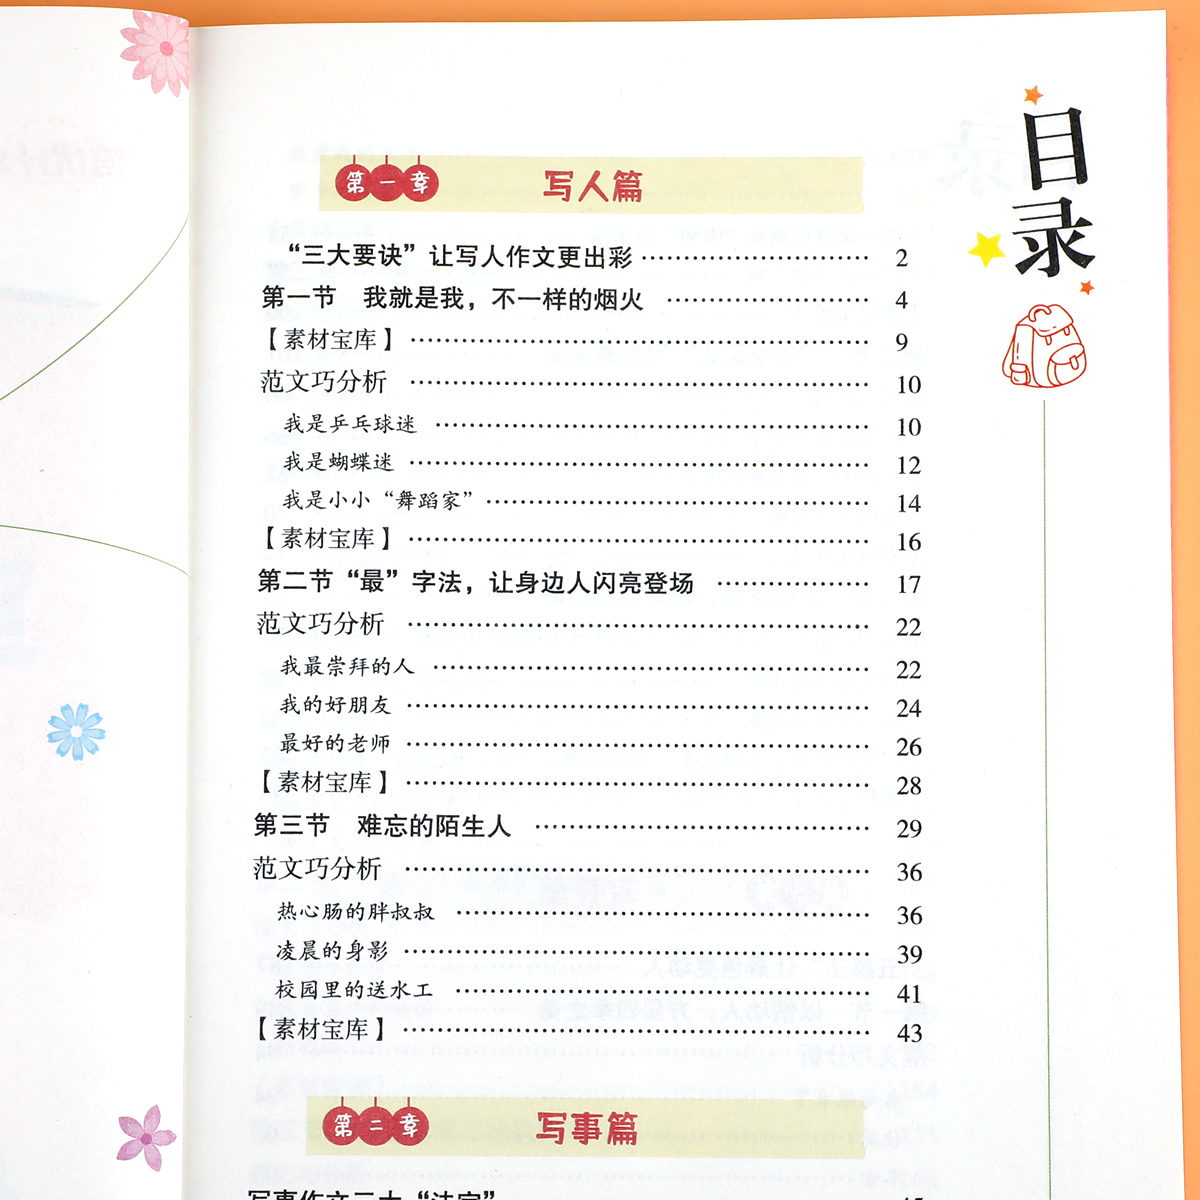 目录
第一章 写人篇
“三大要诀”让写人作文更出彩 …… 2
第一节 我就是我，不一样的烟火 …… 4
【素材宝库】 …… 9
范文巧分析 …… 10
我是乒乓球迷 …… 10
我是蝴蝶迷 …… 12
我是小小“舞蹈家” …… 14
【素材宝库】 …… 16
第二节“最”字法，让身边人闪亮登场 …… 17
范文巧分析 …… 22
我最崇拜的人 …… 22
我的好朋友 …… 24
最好的老师 …… 26
【素材宝库】 …… 28
第三节 难忘的陌生人 …… 29
范文巧分析 …… 36
热心肠的胖叔叔 …… 36
凌晨的身影 …… 39
校园里的送水工 …… 41
【素材宝库】 …… 43
第二章 写事篇